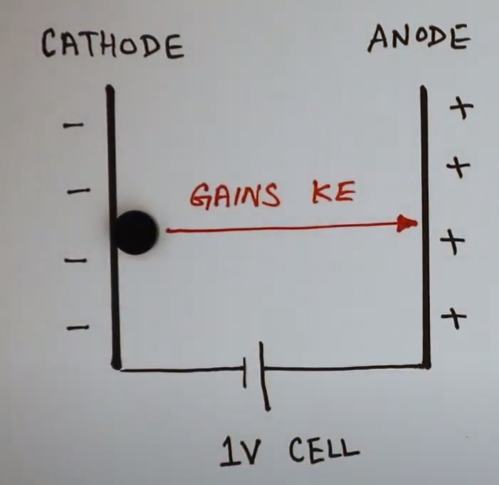 CATHODE
ANODE
− +
− +
GAINS KE
− +
− +
1V CELL